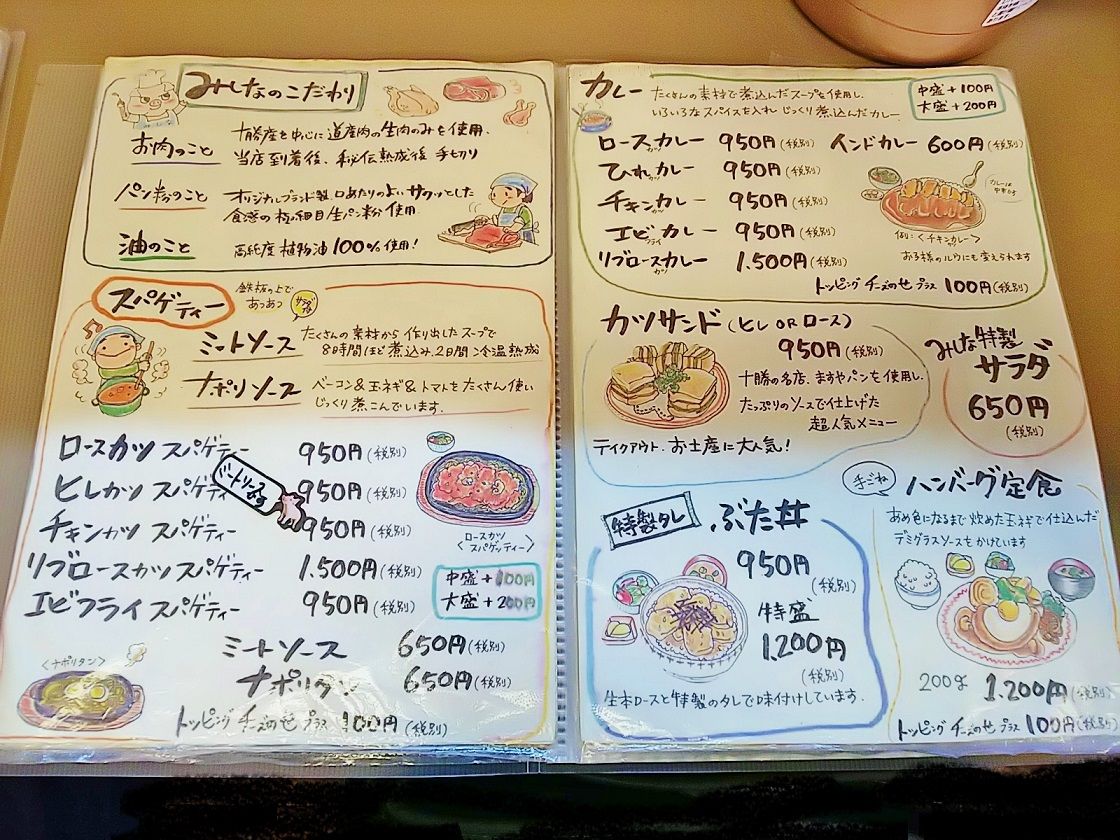 みしなのこだわり
お肉のこと
十勝産を中心に道産肉の生肉のみを使用、
当店到着後、秘伝熟成後 手切り
パン粉のこと
オリジナルブランド製 口あたりのよい サクッとした
食感の極細目生パン粉 使用
油のこと
高純度 植物油 100%使用!
スパゲティー
鉄板の上で
あつあつ
サラダ付
ミートソース
たくさんの素材から 作り出したスープで
8時間ほど煮込み、2日間 冷温熟成
ナポリソース
ベーコン&玉ネギ&トマトをたくさん使い
じっくり煮こんでいます.
ロースカツ スパゲティー 950円(税別)
ヒレカツ スパゲティー 950円(税別)
ミートソース
チキンカツ スパゲティー 950円(税別)
リブロースカツ スパゲティー 1.500円(税別)
エビフライ スパゲティー 950円(税別)
ロースカツ
<スパゲッティー>
中盛+100円
大盛+200円
ミートソース 650円(税別)
<ナポリタン>
ナポリタン 650円(税別)
トッピング チーズのせ プラス 100円(税別)
カレー
たくさんの素材で煮込んだスープを使用し、
いろいろなスパイスを入れ じっくり煮込んだカレー。
中盛+100円
大盛+200円
ロースカツカレー 950円(税別)
インドカレー 600円(税別)
ひれカツカレー 950円(税別)
チキンカツカレー 950円(税別)
エビフライカレー 950円(税別)
リブロースカツカレー 1.500円(税別)
カレーは
中辛です
例:<チキンカレー>
お子様のルウにも変えられます
トッピング チーズのせ プラス 100円(税別)
カツサンド(ヒレ OR ロース)
950円(税別)
十勝の名店、ますやパンを使用し、
たっぷりのソースで仕上げた
超人気メニュー
テイクアウト、お土産に大人気!
みしな特製
サラダ
650円
(税別)
特製タレ ぶた丼
950円
(税別)
特盛
1.200円
(税別)
生本ロースと特製のタレで味付けしています.
手ごね ハンバーグ定食
あめ色になるまで 炒めた玉ネギで仕込んだ
デミグラスソースをかけています
200g 1.200円(税別)
トッピング チーズのせ プラス 100円(税別)